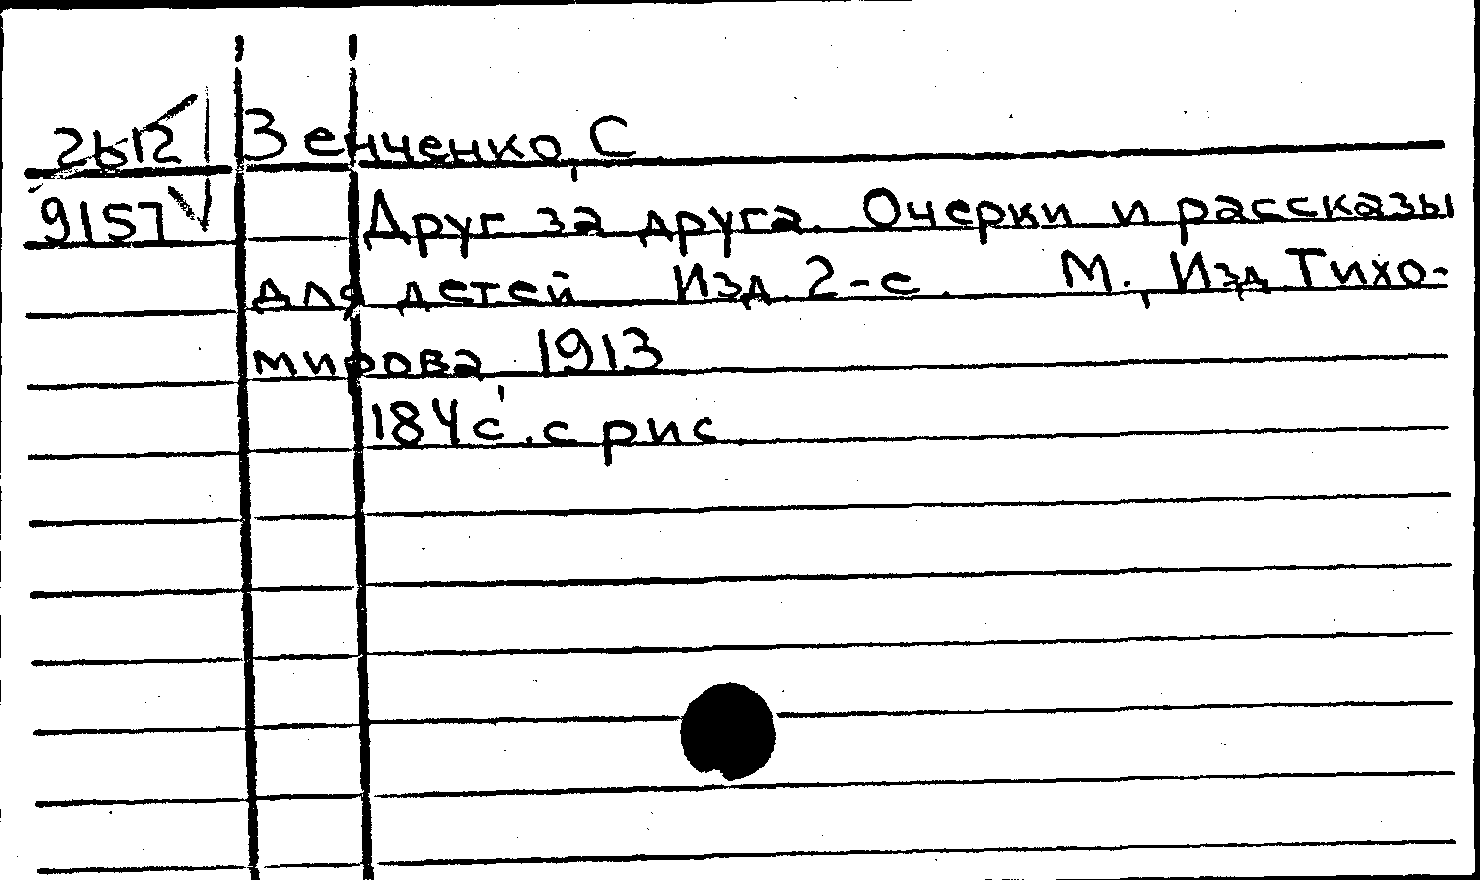 2612 Зенченко, С
9157 Друг за друга. Очерки и рассказы
для детей Изд. 2-е. М., Изд. Тихо-
мирова, 1913
184 с. с рис.